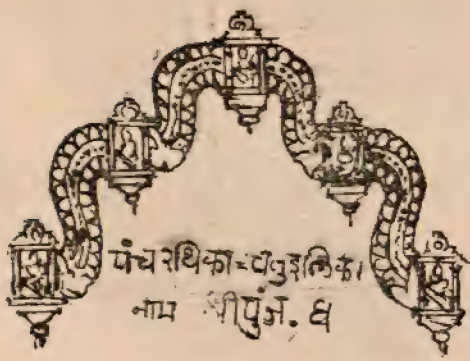 पंच रथिका = चतुइलिका
नाम श्रीपुंज. ४